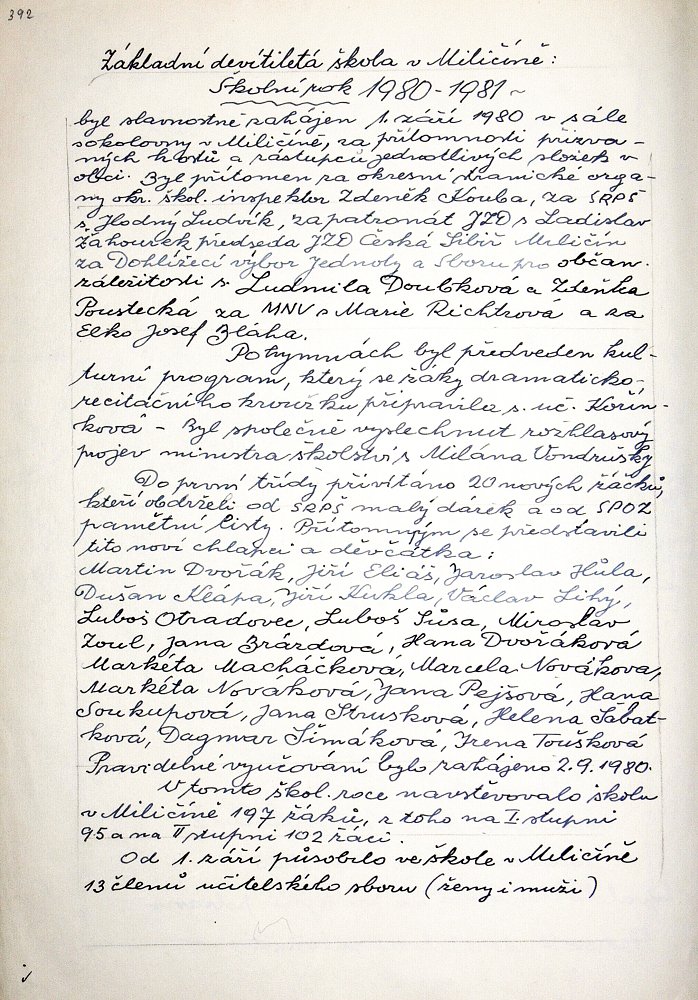 392
Základní devítiletá škola v Miličíně:
Školní rok 1980-1981 ~
byl slavnostně zahájen 1. září 1980 v sále
sokolovny v Miličíně, za přítomnosti přizva-
ných hostů a zástupců jednotlivých složek v
obci. Byl přítomen za okresní stranické orgá-
ny okr. škol. inspektor Zdeněk Kouba, za SRPŠ
s. Hodný Ludvík, za patronát JZD s Ladislav
Žahourek předseda JZD Česká Sibiř Miličín
za Dohlížecí výbor Jednoty a Sboru pro občan.
záležitosti s. Ludmila Doubková a Zdeňka
Poustecká za MNV s Marie Richtrová a za
Elko Josef Bláha.
Po hymnách byl předveden kul-
turní program, který se žáky dramaticko-
recitačního kroužku připravila s. uč. Kořín-
ková - Byl společně vyslechnut rozhlasový
projev ministra školství s Milána Vondrušky
Do první třídy přivítáno 20 nových žáčků,
kteří obdrželi od SRPŠ malý dárek a od SPOZ
pamětní listy. Přítomným se představili
tito noví chlapci a děvčátka:
Martin Dvořák, Jiří Eliáš, Jaroslav Hůla,
Dušan Klápa, Jiří Kukla, Václav Lihý,
Luboš Otradovec, Luboš Sůsa, Miroslav
Zoul, Jana Brázdová, Hana Dvořáková
Markéta Macháčková, Marcela Nováková,
Markéta Nováková, Jana Pejšová, Hana
Soukupová, Jana Strusková, Helena Šabat-
ková, Dagmar Šimáková, Irena Toušková
Pravidelné vyučování bylo zahájeno 2.9.1980.
V tomto škol. roce navštěvovalo školu
v Miličíně 197 žáků, z toho na I. stupni
95 a na II stupni 102 žáci.
Od 1. září působilo ve škole v Miličíně
13 členů učitelského sboru (ženy i muži)